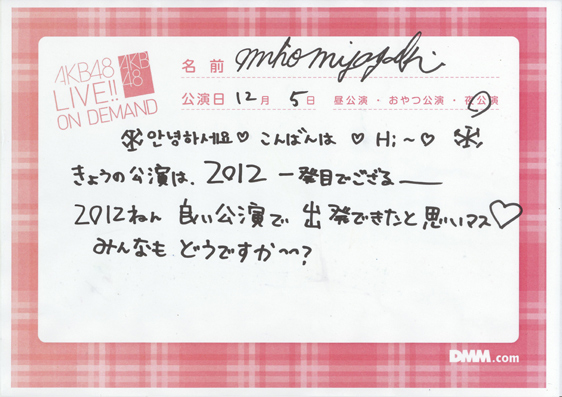 AKB48
LIVE!!
ON DEMAND
AKB
48
名前 miho miyazaki
公演日 12月 5日 昼公演・おやつ公演・夜公演
안녕하세요♡ こんばんは ♡ Hi;~♡
きょうの公演は、2012 一発目でござる——
2012ねん 良い公演で 出発できたと思いマス♡
みんなも どうですか〜?
DMM.com